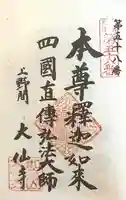 第五十八番
本尊釋迦如来
四國直傳弘法大師
上野間
大仙寺